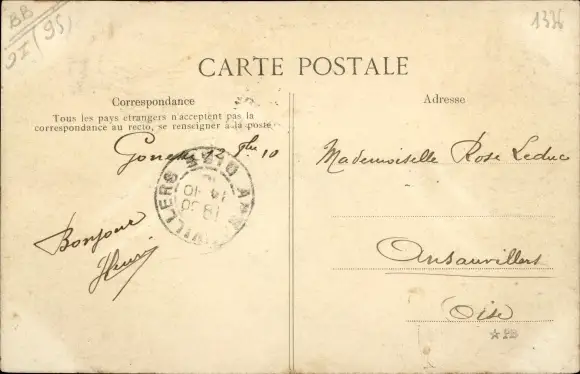 BB
(95)
1336
CARTE POSTALE
Correspondance
Tous les pays étrangers n'acceptent pas la
correspondance au recto, se renseigner à la poste
Adresse
12 10
Bonjour
Henri
Mademoiselle Rose Leduc
Ansauvillers
Oise
18 30